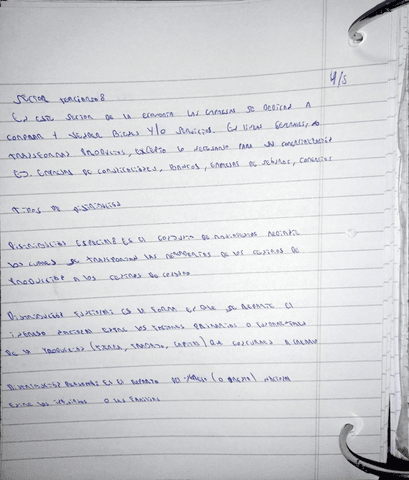 4/5
Sector terciario:
En este sector de la economia las empresas se dedican a
comprar y vender bienes y/o servicios. En lineas generales, no
transforman productos, excepto lo necesario para su comercialización
Ej. empresas de combustibles, bancos, empresas de seguros, comercios
Tipos de distribución
Distribución espacial es el conjunto de movimientos mediante
los cuales se transportan las de los centros de
producción a los centros de
Distribución funcional es la forma en que se reparte el
ingreso nacional entre los factores primarios o
de la producción (tierra, trabajo, capital) que
Distribución personal es el reparto del ingreso (o renta) nacional
entre los individuos o sus familias